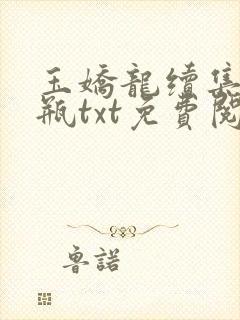 玉嬌龍續集
瓶txt免費閱
魯諾